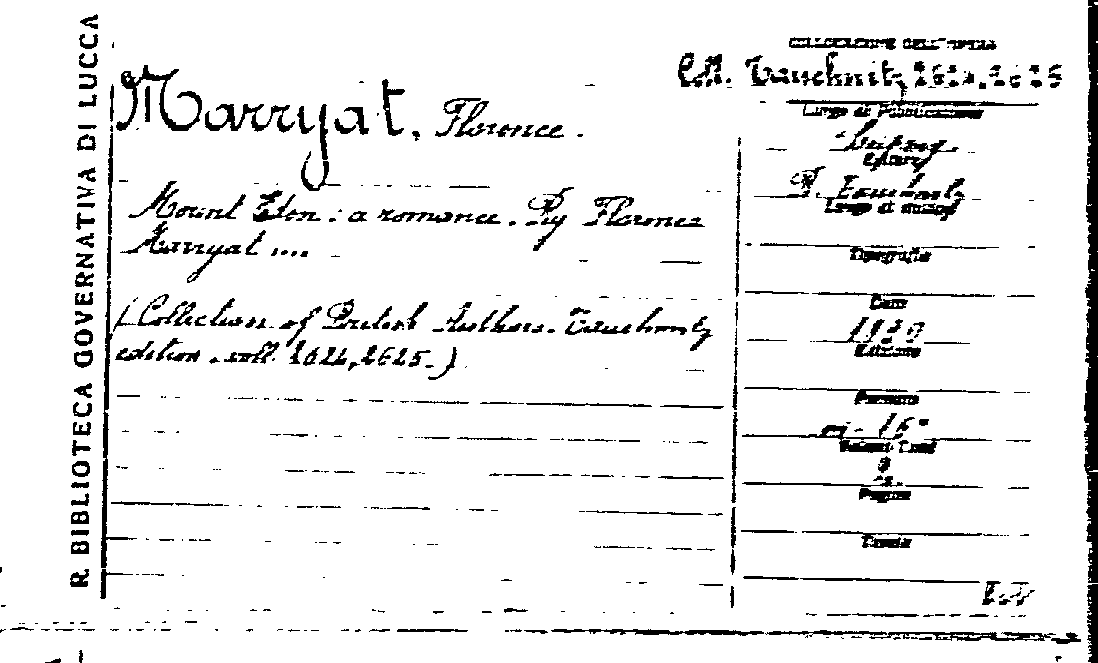 R. BIBLIOTECA GOVERNATIVA DI LUCCA
COLLOCAZIONE DELL'OPERA
Coll. Tauchnitz 2624, 2625
Marryat, Florence.
Mount Eden: a romance. By Florence
Marryat ....
(Collection of British Authors. Tauchnitz
edition. voll. 2624, 2625.)
Luogo di Pubblicazione
Leipzig
Editore
B. Tauchnitz
Luogo di stampa
Tipografia
Data
Edizione
Formato
in-16°
Volumi
2
Pagine
Tavole